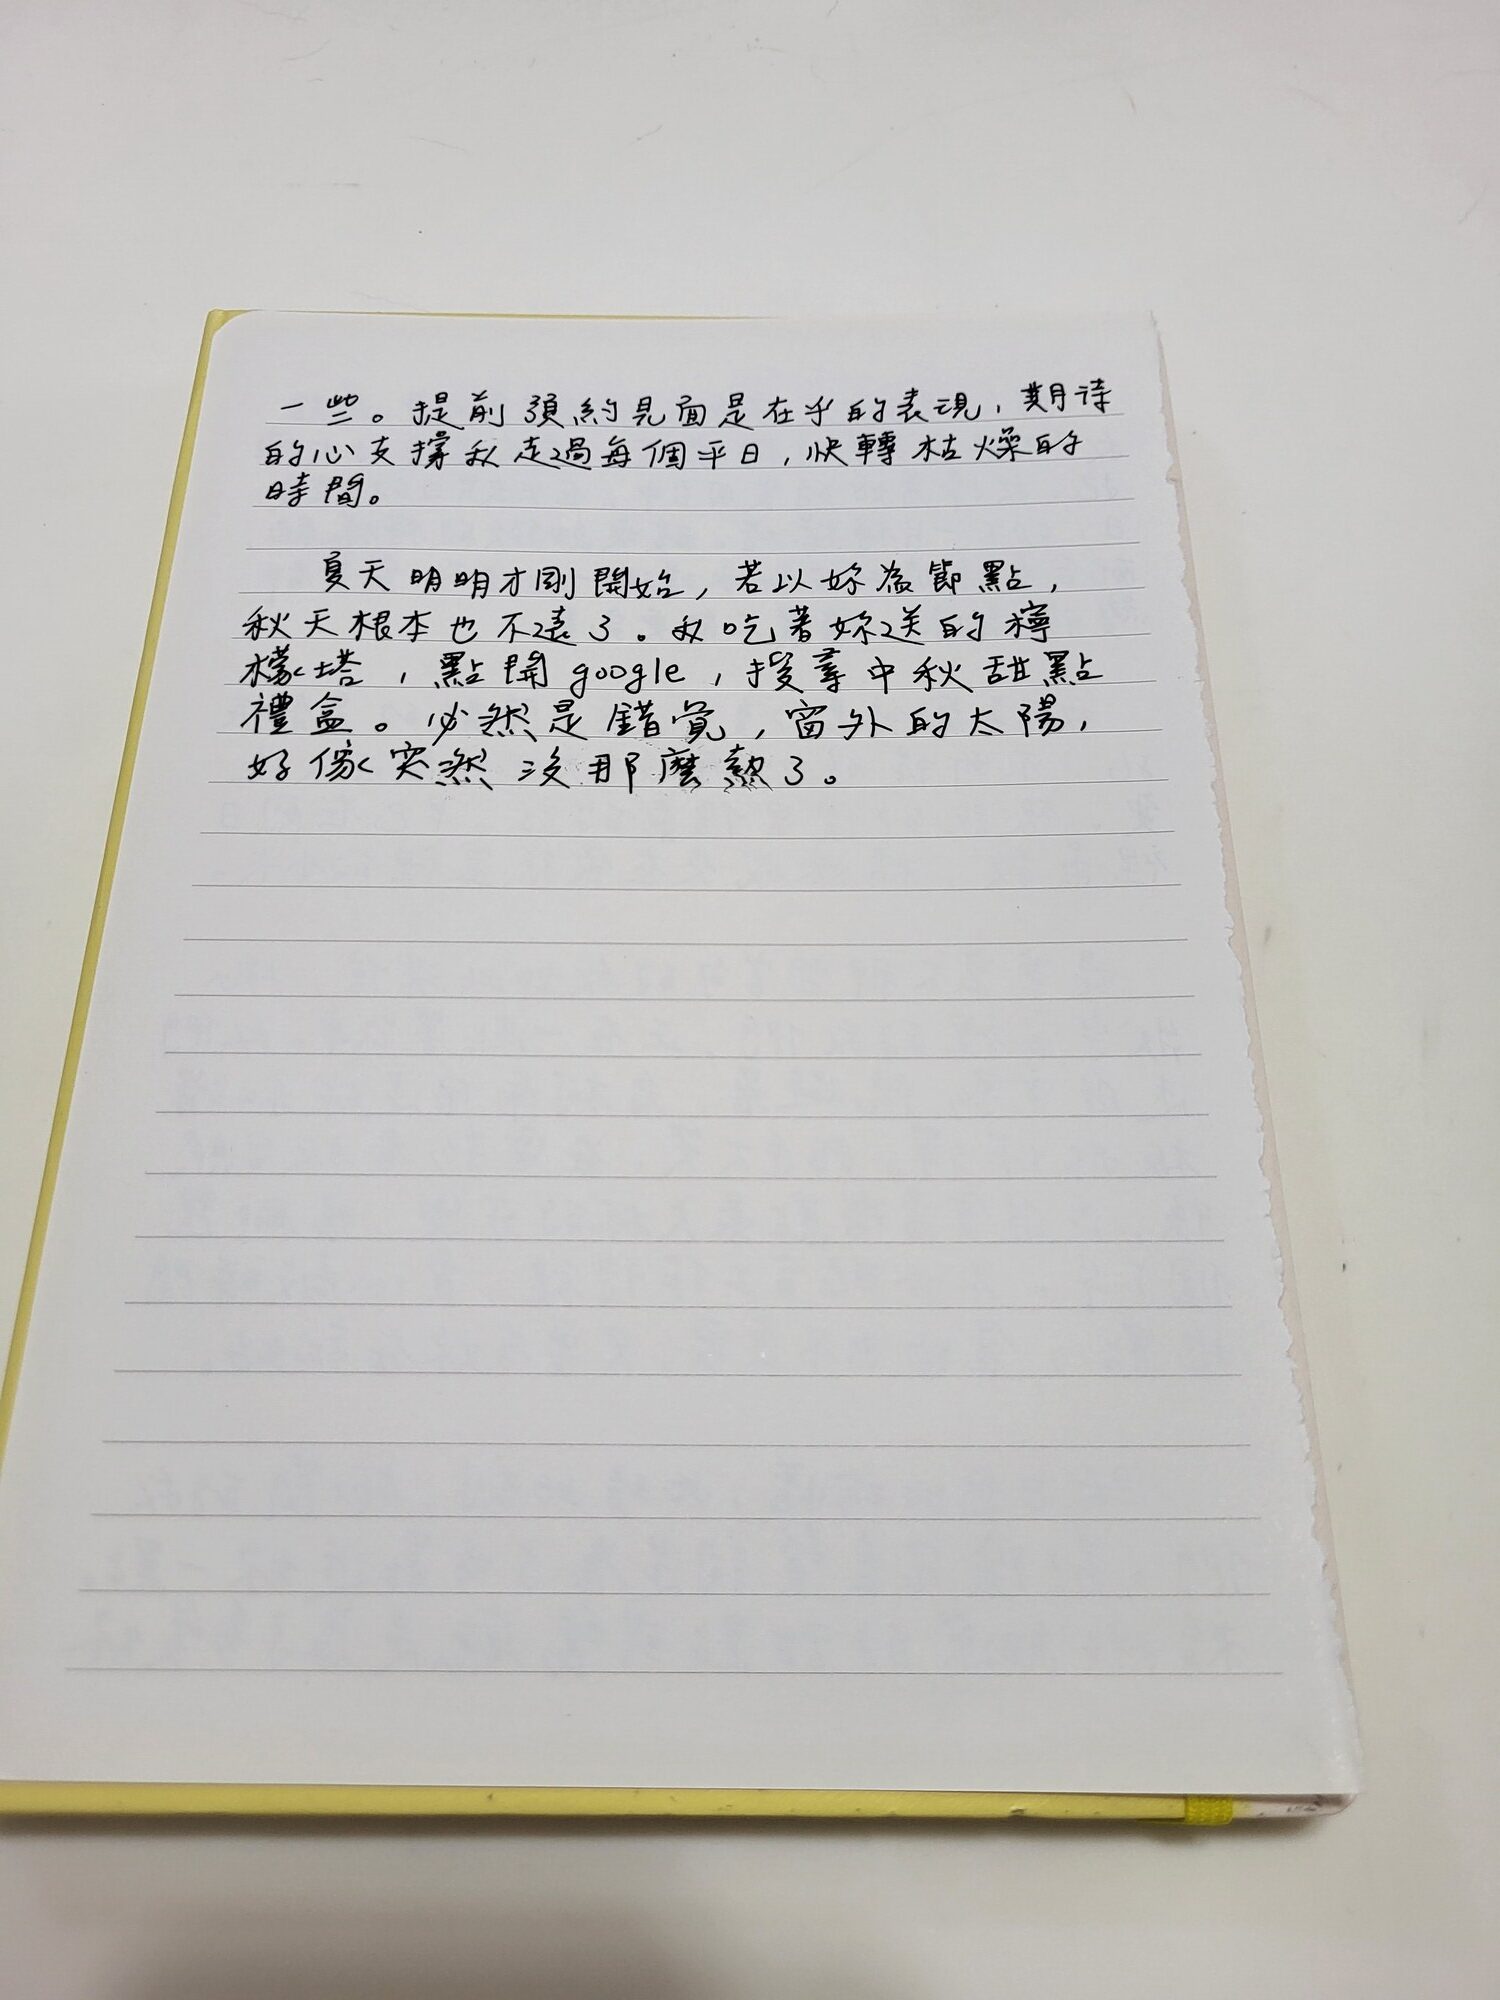 一些。提前預約見面是在乎的表現，期待
的心支撐我走過每個平日，快轉枯燥的
時間。
夏天明明才剛開始，若以妳為節點，
秋天根本也不遠了。我吃著妳送的檸
檬塔，點開google，搜尋中秋甜點
禮盒。必然是錯覺，窗外的太陽，
好像突然沒那麼熱了。